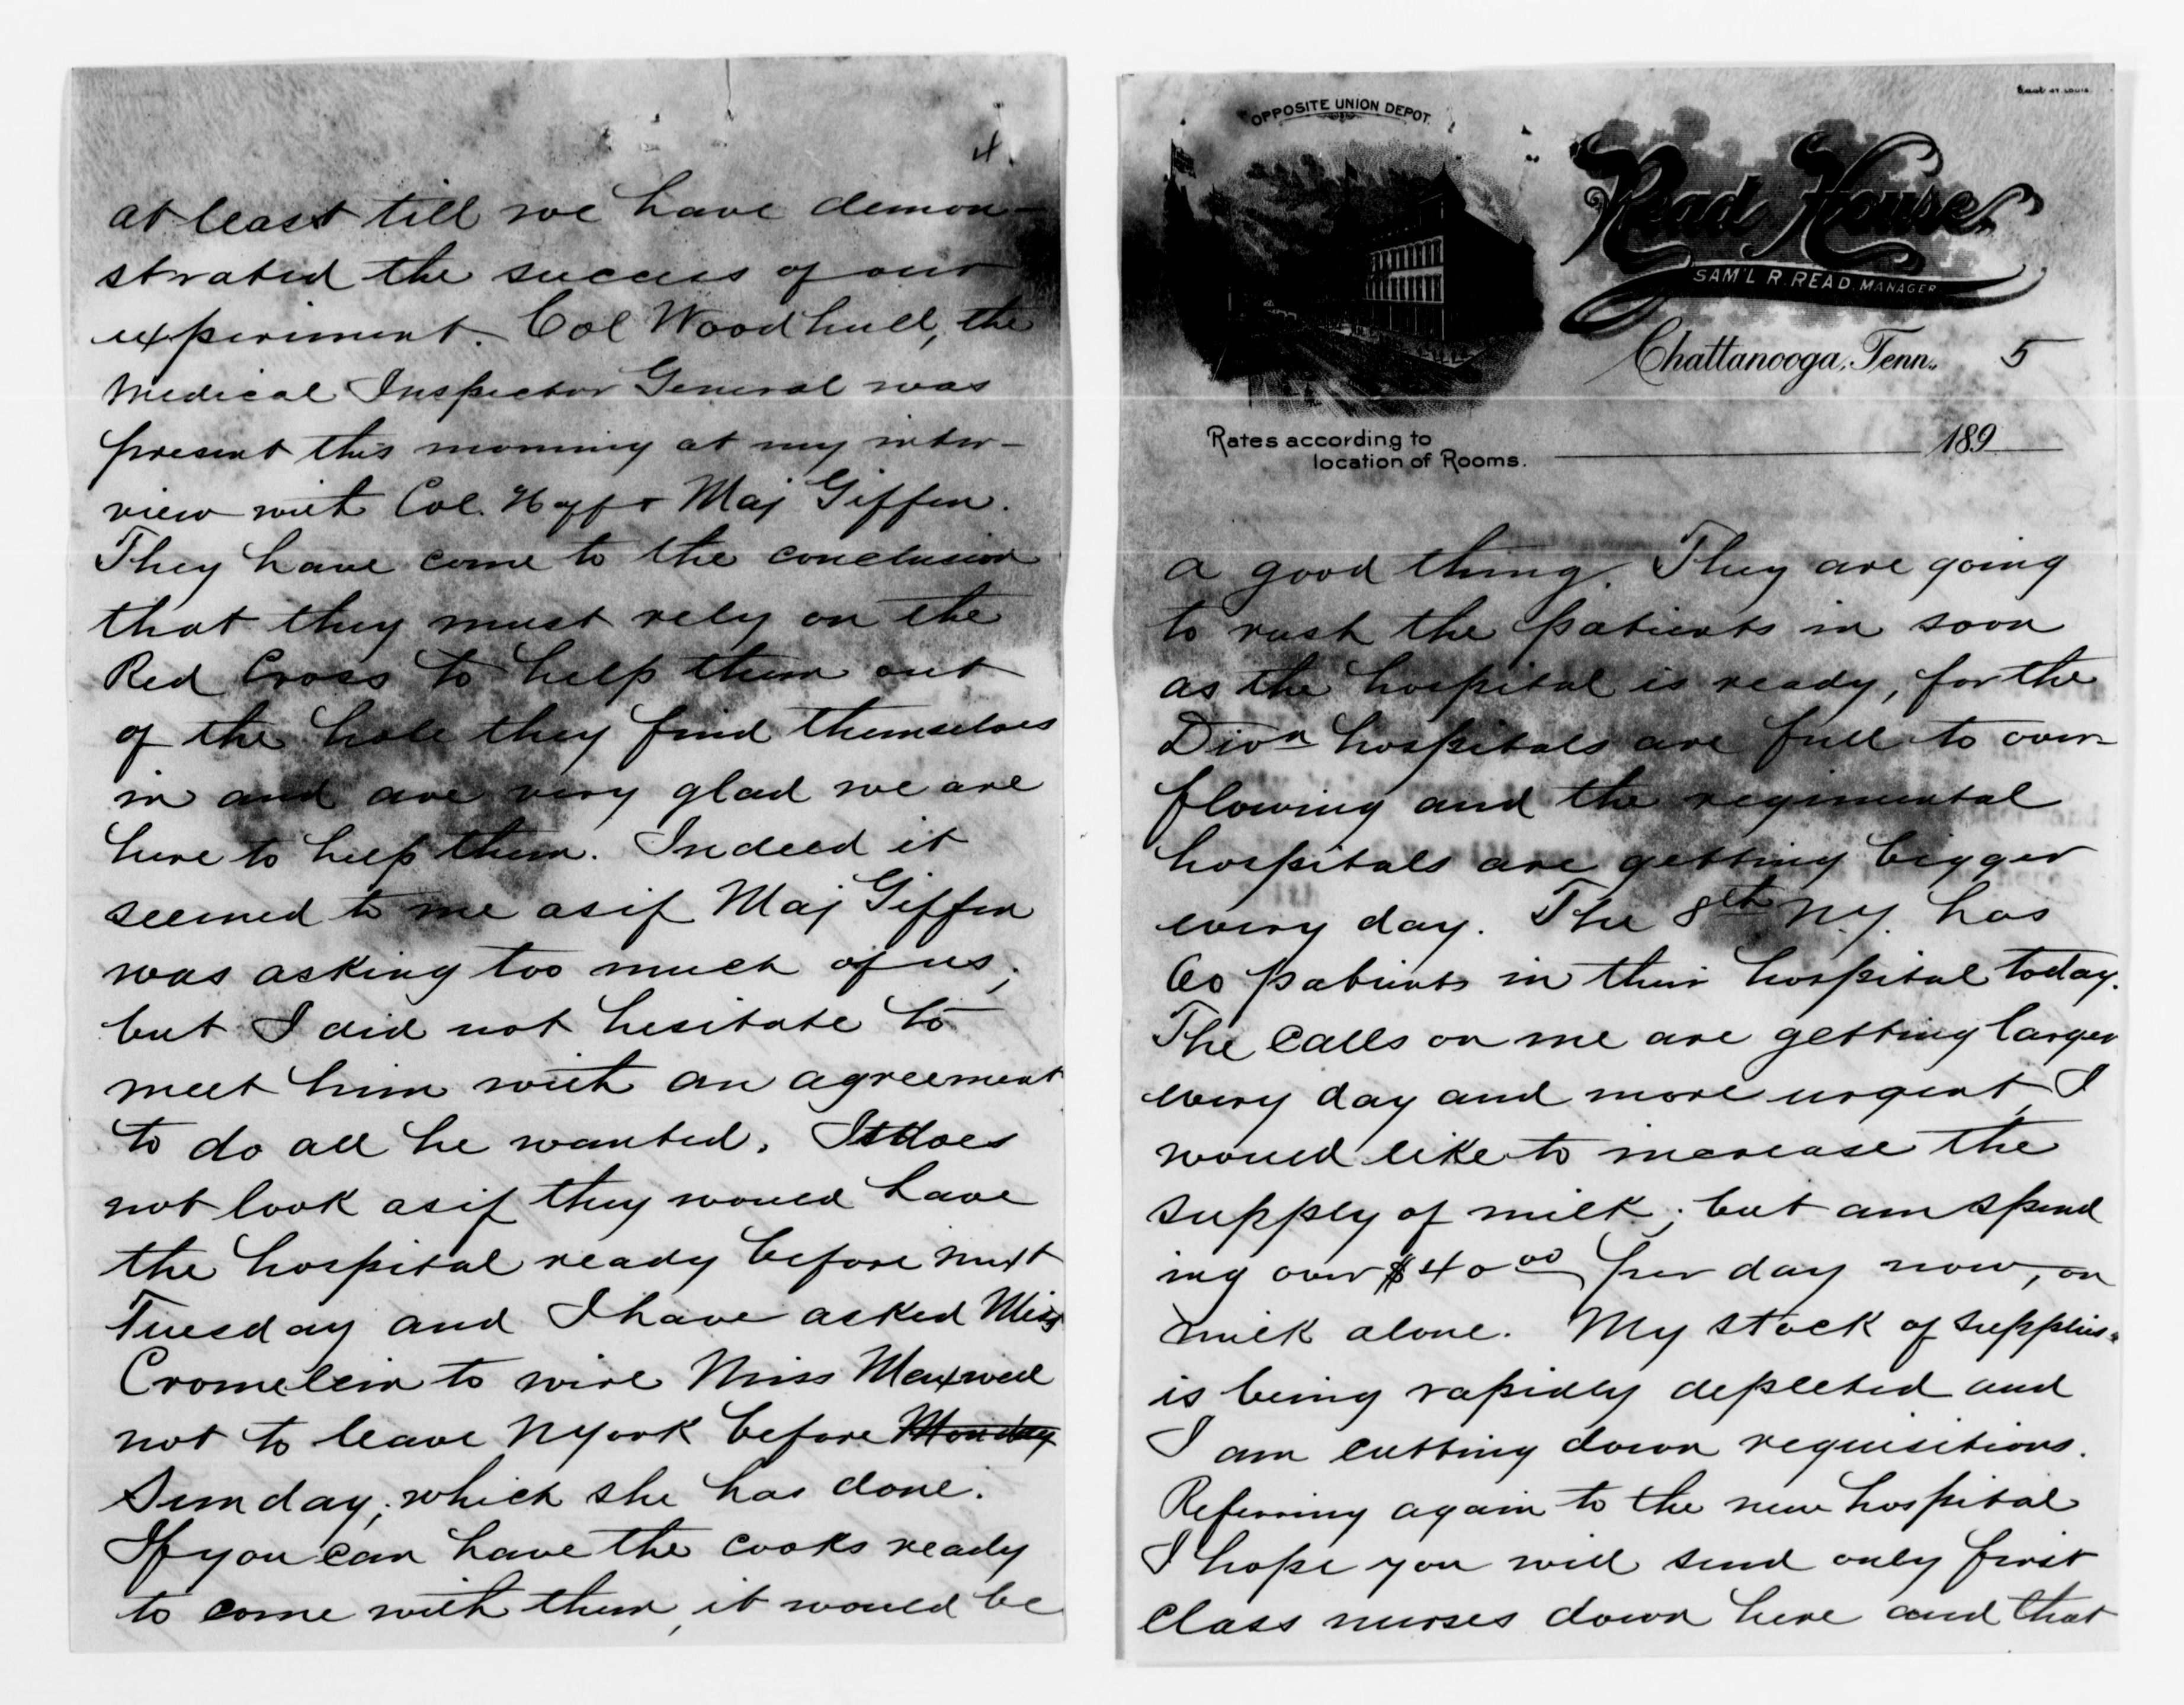 4.
at least till we have demon-
strated the success of our
experiment. Col Woodhull, the
Medical Inspector General was
present this morning at my inter-
view with Col. Hoff & Maj Giffin.
They have come to the conclusion
that they must rely on the
Red Cross to help them out
of the hole they find themselves
in and are very glad we are
here to help them. Indeed it
seemed to me as if Maj Giffin
was asking too much of us;
but I did not hesitate to
meet him with an agreement
to do all he wanted. It does
not look as if they would have
the hospital ready before next
Tuesday and I have asked Miss
Cromelein to wire Miss Maxwell
not to leave NYork before Monday
Sunday; which she has done.
If you can have the cooks ready
to come with them, it would be
OPPOSITE UNION DEPOT.
Read House
SAM'L R. READ. MANAGER
Chattanooga, Tenn. 5
Rates according to
location of Rooms.
189
a good thing. They are going
to rush the patients in soon
as the hospital is ready, for the
Divn hospitals are full to over-
flowing and the regimental
hospitals are getting bigger
every day. The 8th N.Y. has
60 patients in their hospital today.
The calls on me are getting larger
every day and more urgent. I
would like to increase the
supply of milk; but am spend
ing over $40 00 per day now, on
milk alone. My stock of supplies
is being rapidly depleted and
I am cutting down requisitions.
Referring again to the new hospital
I hope you will send only first
class nurses down here and that